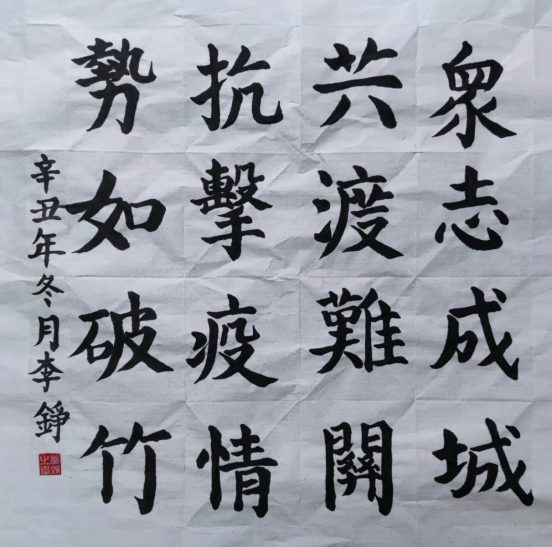 衆志成城
共渡難關
抗擊疫情
勢如破竹
辛丑年冬月李錚